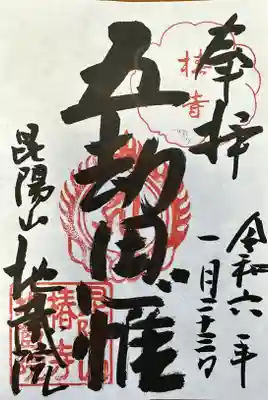 奉拝
令和六年
一月二十三日
椿寺
五劫思惟
昆陽山地蔵院
椿寺